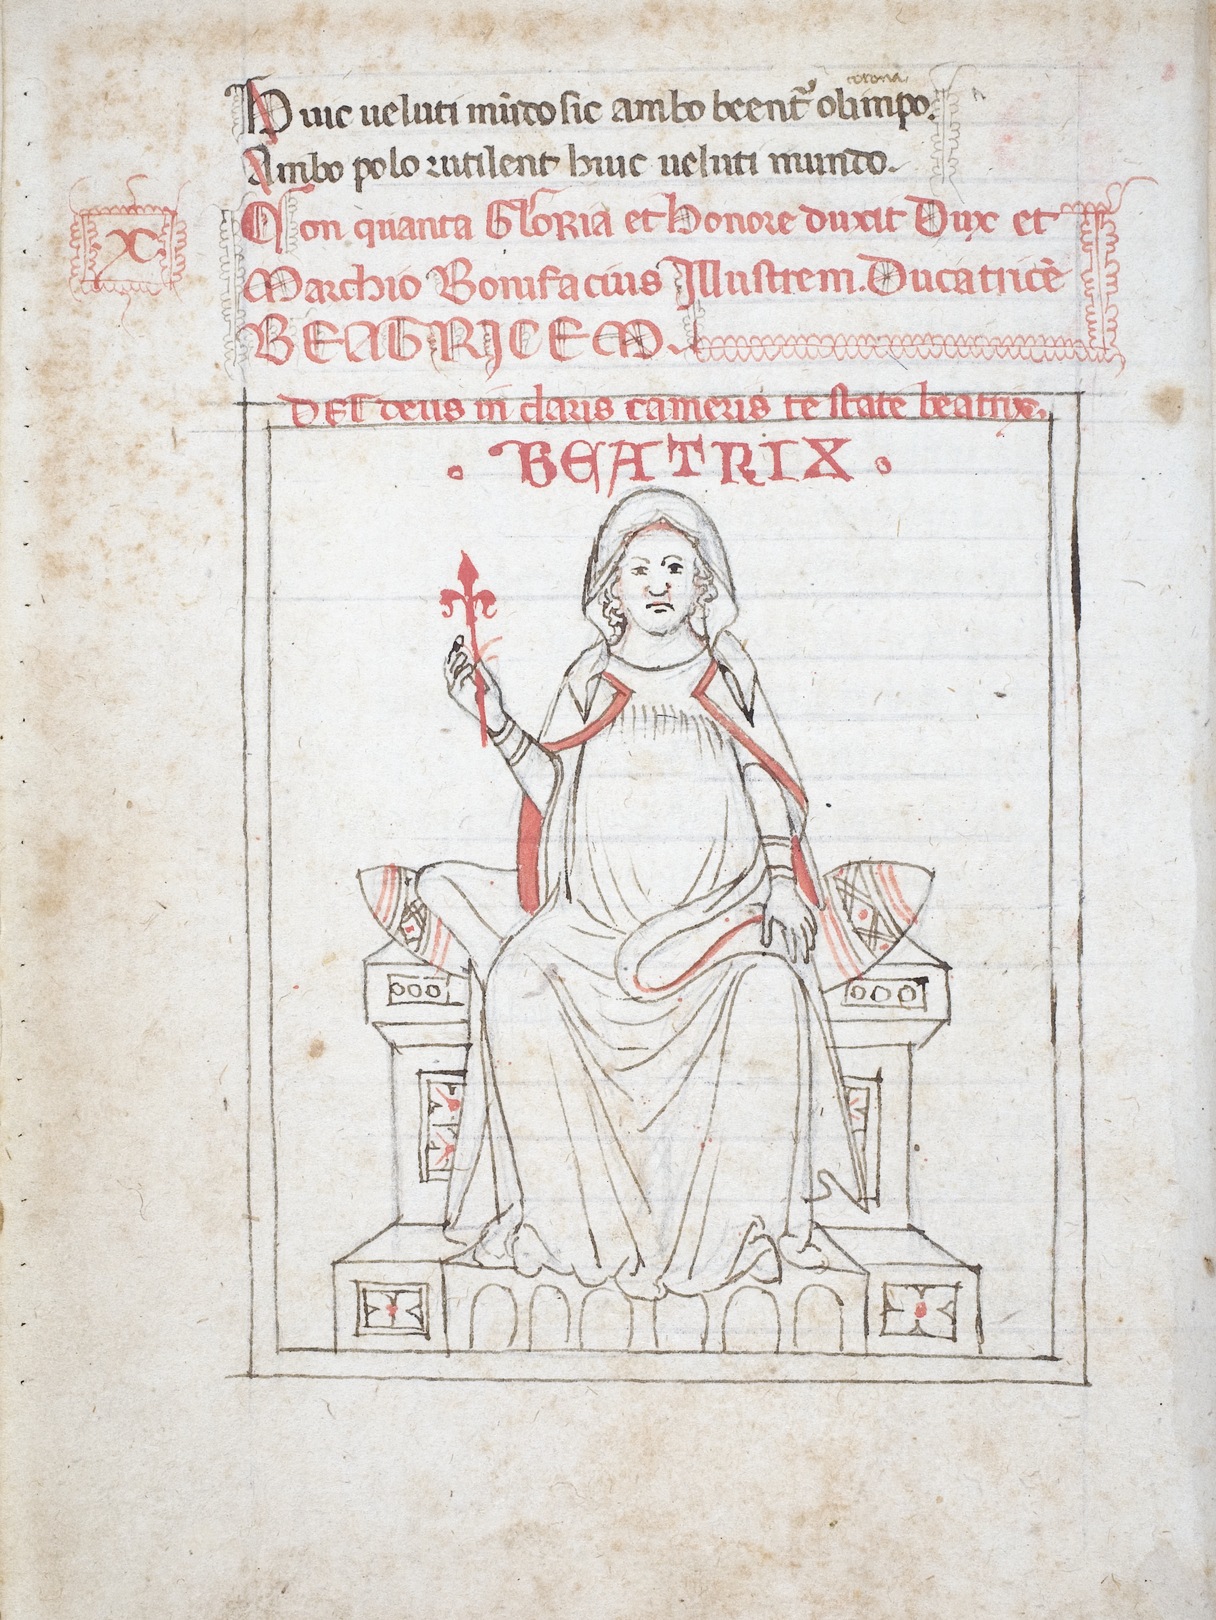 corona
Huic ueluti mūdo sic ambo beent̄ olimpo.
Ambo polo rutilent huic ueluti mundo.
X
Con quanta Gloria et honore duxit Dux et
Marchio Bonifacius Illustrem. Ducatricē
BEATRICEM.
DET deus in claris cameris te state beatrix.
BEATRIX